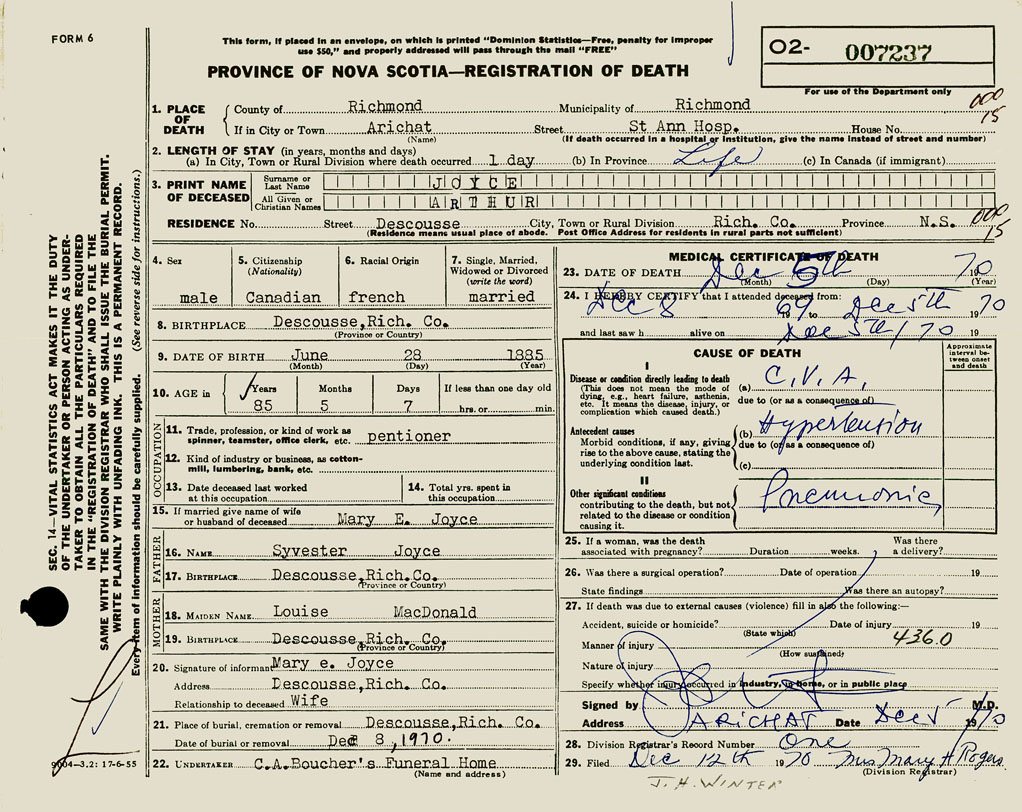 FORM 6
This form, if placed in an envelope, on which is printed "Dominion Statistics—Free, penalty for improper
use $50," and properly addressed will pass through the mail "FREE"
PROVINCE OF NOVA SCOTIA—REGISTRATION OF DEATH
O2- 007237
For use of the Department only
1. PLACE OF DEATH
County of Richmond Municipality of Richmond
000
15
If in City or Town Arichat Street St Ann Hosp. House No.
(Name) (If death occurred in a hospital or Institution, give the name instead of street and number)
2. LENGTH OF STAY (in years, months and days)
(a) In City, Town or Rural Division where death occurred 1 day (b) In Province Life (c) In Canada (if immigrant)
3. PRINT NAME OF DECEASED
Surname or Last Name JOYCE
All Given or Christian Names ARTHUR
RESIDENCE No. Street Descousse City, Town or Rural Division Rich. Co. Province N.S.
000
15
(Residence means usual place of abode. Post Office Address for residents in rural parts not sufficient)
4. Sex
male
5. Citizenship (Nationality)
Canadian
6. Racial Origin
french
7. Single, Married, Widowed or Divorced (write the word)
married
8. BIRTHPLACE Descousse,Rich. Co.
(Province or Country)
9. DATE OF BIRTH June 28 1885
(Month) (Day) (Year)
10. AGE in Years Months Days If less than one day old
85 5 7 hrs. or min.
OCCUPATION
11. Trade, profession, or kind of work as
spinner, teamster, office clerk, etc. pentioner
12. Kind of industry or business, as cotton-
mill, lumbering, bank, etc.
13. Date deceased last worked
at this occupation
14. Total yrs. spent in
this occupation
15. If married give name of wife
or husband of deceased Mary E. Joyce
FATHER
16. NAME Syvester Joyce
17. BIRTHPLACE Descousse,Rich.Co.
(Province or Country)
MOTHER
18. MAIDEN NAME Louise MacDonald
19. BIRTHPLACE Descousse,Rich. Co.
(Province or Country)
20. Signature of informant Mary e. Joyce
Address Descousse,Rich. Co.
Relationship to deceased Wife
21. Place of burial, cremation or removal Descousse,Rich. Co.
Date of burial or removal Dec 8,1970.
22. UNDERTAKER C.A.Boucher's Funeral Home
(Name and address)
MEDICAL CERTIFICATE OF DEATH
23. DATE OF DEATH Dec 5th 70
(Month) (Day) (Year)
24. I HEREBY CERTIFY that I attended deceased from:
Dec 8 69 to Dec 5th 1970
and last saw h alive on Dec 5th/70 19
CAUSE OF DEATH
Approximate interval between onset and death
I
Disease or condition directly leading to death
(This does not mean the mode of
dying, e.g., heart failure, asthenia,
etc. It means the disease, injury, or
complication which caused death.)
(a) C.V.A.
due to (or as a consequence of)
Antecedent causes
Morbid conditions, if any, giving
rise to the above cause, stating the
underlying condition last.
(b) Hypertension
due to (or as a consequence of)
(c)
II
Other significant conditions
contributing to the death, but not
related to the disease or condition
causing it.
Pneumonia
25. If a woman, was the death Was there
associated with pregnancy? Duration weeks. a delivery?
26. Was there a surgical operation? Date of operation 19
State findings Was there an autopsy?
27. If death was due to external causes (violence) fill in also the following:—
Accident, suicide or homicide? Date of injury 19
(State which)
436.0
Manner of injury
(How sustained)
Nature of injury
Specify whether injury occurred in industry, in home, or in public place
Signed by M.D.
Address ARICHAT Date Dec 5 1970
28. Division Registrar's Record Number One
29. Filed Dec 12th 1970 Mrs Mary H Rogers
(Division Registrar)
J. H. WINTER
SEC. 14—VITAL STATISTICS ACT MAKES IT THE DUTY
OF THE UNDERTAKER OR PERSON ACTING AS UNDER-
TAKER TO OBTAIN ALL THE PARTICULARS REQUIRED
IN THE "REGISTRATION OF DEATH" AND TO FILE THE
SAME WITH THE DIVISION REGISTRAR WHO SHALL ISSUE THE BURIAL PERMIT.
WRITE PLAINLY WITH UNFADING INK. THIS IS A PERMANENT RECORD.
Every item of information should be carefully supplied. (See reverse side for instructions.)
9004—3.2: 17-6-55